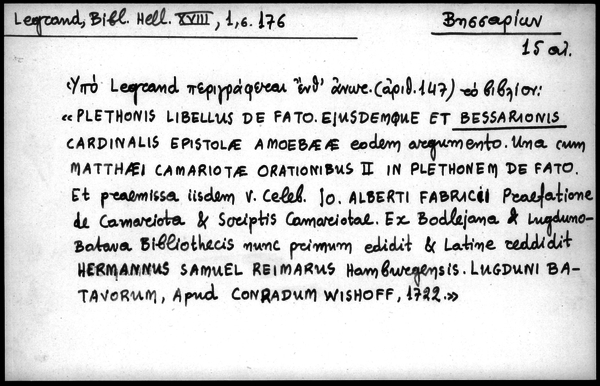 Legrand, Bibl. Hell. XVIII, 1, σ. 176
Βησσαρίων
15 αι.
Ὑπό Legrand περιγράφεται ἔνθ' ἀνωτ. (ἀριθ. 147) τό βιβλίον:
«PLETHONIS LIBELLUS DE FATO. EJUSDEMQUE ET BESSARIONIS
CARDINALIS EPISTOLÆ AMOEBÆÆ eodem argumento. Una cum
MATTHÆI CAMARIOTÆ ORATIONIBUS II IN PLETHONEM DE FATO.
Et praemissa iisdem V. Celeb. Jo. ALBERTI FABRICII Praefatione
de Camariota & Scriptis Camariotae. Ex Bodlejana & Lugduno-
Batava Bibliothecis nunc primum edidit & Latine reddidit
HERMANNUS SAMUEL REIMARUS Hamburgensis. LUGDUNI BA-
TAVORUM, Apud CONRADUM WISHOFF, 1722.»